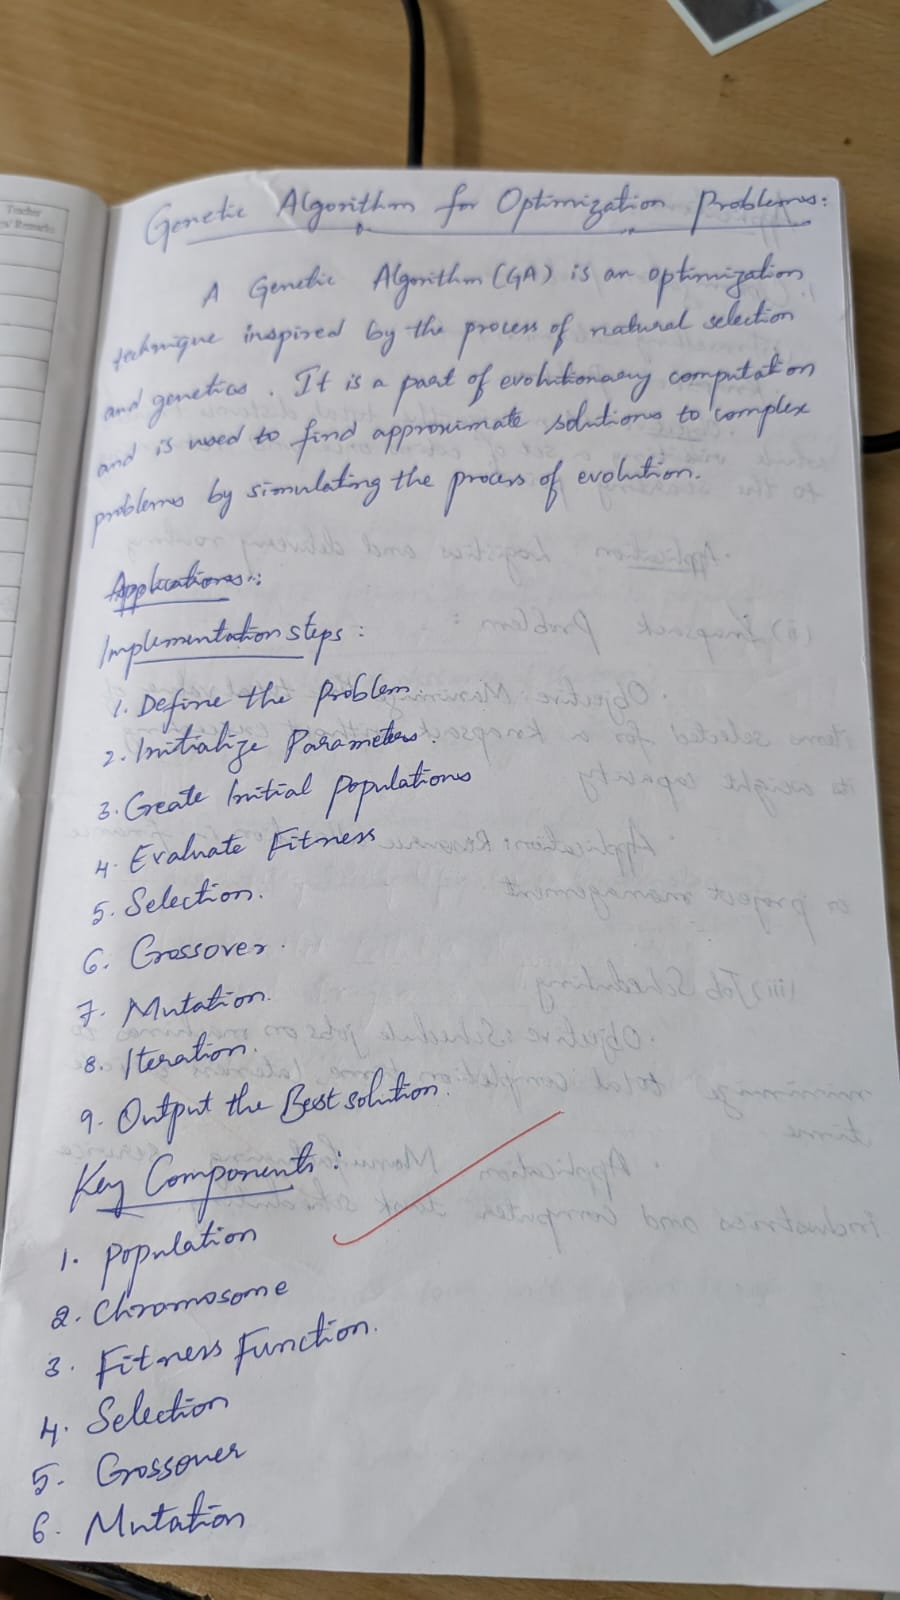 Teacher
Genetic Algorithm for Optimization Problems:
A Genetic Algorithm (GA) is an optimization
technique inspired by the process of natural selection
and genetics. It is a part of evolutionary computation
and is used to find approximate solutions to complex
problems by simulating the process of evolution.
Applications:
Implementation steps:
1. Define the Problem
2. Initialize Parameters.
3. Create Initial Populations
4. Evaluate Fitness
5. Selection.
6. Crossover.
7. Mutation.
8. Iteration.
9. Output the Best solution.
Key Components:
1. Population
2. Chromosome
3. Fitness Function.
4. Selection
5. Crossover
6. Mutation